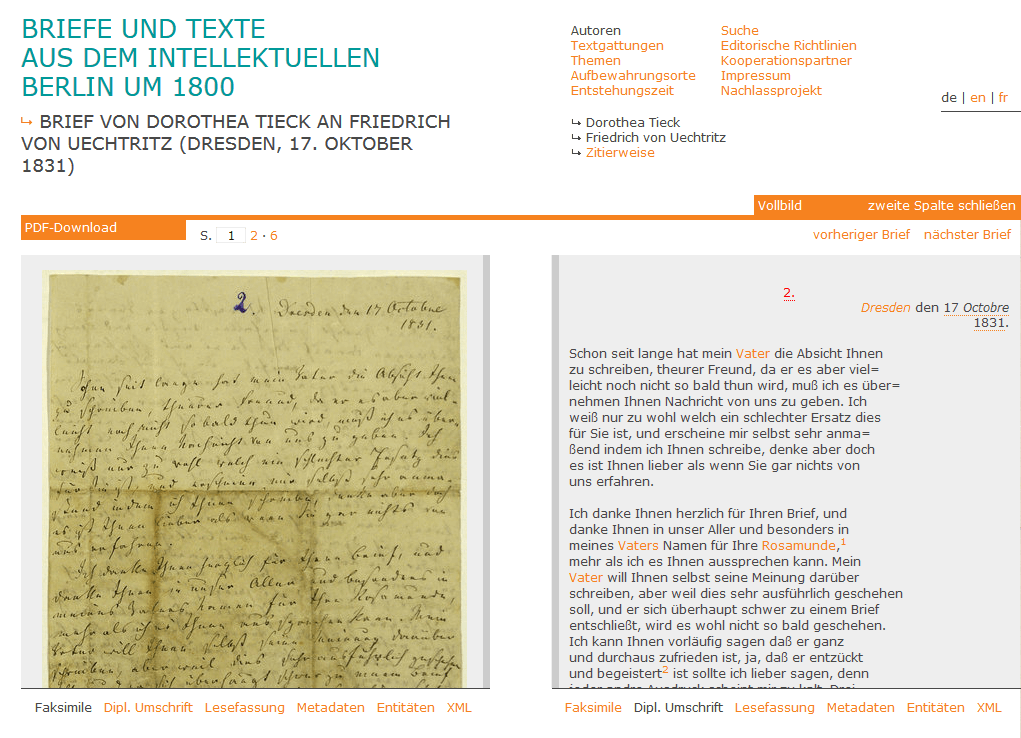 BRIEFE UND TEXTE
AUS DEM INTELLEKTUELLEN
BERLIN UM 1800
↳ BRIEF VON DOROTHEA TIECK AN FRIEDRICH
VON UECHTRITZ (DRESDEN, 17. OKTOBER
1831)
Autoren
Textgattungen
Themen
Aufbewahrungsorte
Entstehungszeit
Suche
Editorische Richtlinien
Kooperationspartner
Impressum
Nachlassprojekt
↳ Dorothea Tieck
↳ Friedrich von Uechtritz
↳ Zitierweise
de | en | fr
Vollbild zweite Spalte schließen
PDF-Download
S. 1 2 · 6
vorheriger Brief nächster Brief
2. Dresden den 17. Octobre
1831.
Schon seit lange hat mein Vater die Absicht Ihnen
zu schreiben, theurer Freund, da er es aber viel=
leicht noch nicht so bald thun wird, muß ich es über=
nehmen Ihnen Nachricht von uns zu geben. Ich
weiß nur zu wohl welch ein schlechter Ersatz dies
für Sie ist, und erscheine mir selbst sehr anma=
ßend indem ich Ihnen schreibe, denke aber doch
es ist Ihnen lieber als wenn Sie gar nichts von
uns erfahren.
Ich danke Ihnen herzlich für Ihren Brief, und
danke Ihnen in unser Aller und besonders in
meines Vaters Namen für Ihre Rosamunde,
mehr als ich es Ihnen aussprechen kann. Mein
Vater will Ihnen selbst seine Meinung darüber
schreiben, aber weil dies sehr ausführlich geschehen
soll, und er sich überhaupt schwer zu einem Brief
2.
Dresden den 17 Octobre
1831.
Schon seit lange hat mein Vater die Absicht Ihnen
zu schreiben, theurer Freund, da er es aber viel=
leicht noch nicht so bald thun wird, muß ich es über=
nehmen Ihnen Nachricht von uns zu geben. Ich
weiß nur zu wohl welch ein schlechter Ersatz dies
für Sie ist, und erscheine mir selbst sehr anma=
ßend indem ich Ihnen schreibe, denke aber doch
es ist Ihnen lieber als wenn Sie gar nichts von
uns erfahren.
Ich danke Ihnen herzlich für Ihren Brief, und
danke Ihnen in unser Aller und besonders in
meines Vaters Namen für Ihre Rosamunde,1
mehr als ich es Ihnen aussprechen kann. Mein
Vater will Ihnen selbst seine Meinung darüber
schreiben, aber weil dies sehr ausführlich geschehen
soll, und er sich überhaupt schwer zu einem Brief
entschließt, wird es wohl nicht so bald geschehen.
Ich kann Ihnen vorläufig sagen daß er ganz
und durchaus zufrieden ist, ja, daß er entzückt
und begeistert2 ist sollte ich lieber sagen, denn
Faksimile Dipl. Umschrift Lesefassung Metadaten Entitäten XML
Faksimile Dipl. Umschrift Lesefassung Metadaten Entitäten XML